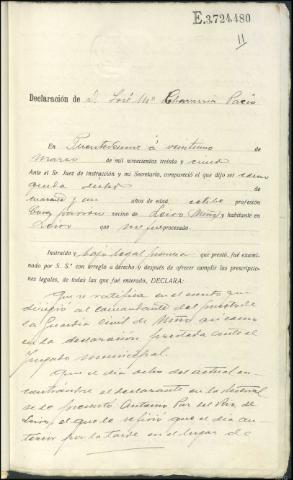 E.3,724,480
11
Declaración de D. José Mª Chavarria Pacio
En Puentedeume á veintiuno de
Marzo de mil novecientos treinta y cinco
Ante el Sr. Juez de instrucción y mi Secretaría, compareció el que dijo ser como
queda dicho de
cuarenta y un años de edad, estado profesión
Cura párroco vecino de Leiro Miño y habitante en
Leiro que no fué procesado
Instruído y bajo legal promesa que prestó, fué exami-
nado por S. Sª. con arreglo a derecho y después de ofrecer cumplir las prescripciones
legales, de todas las que fué enterado, DECLARA:
Que se ratifica en el escrito que
dirigió al comandante del puesto de
la Guardia Civil de Miño asi como
en la declaración prestada ante el
Juzgado municipal.
Que el día ocho del actual en-
contrándose el declarante en la rectoral
se le presentó Antonio Paz del Río de
Leiro, el que le refirió que el día an-
terior por la tarde en el lugar de